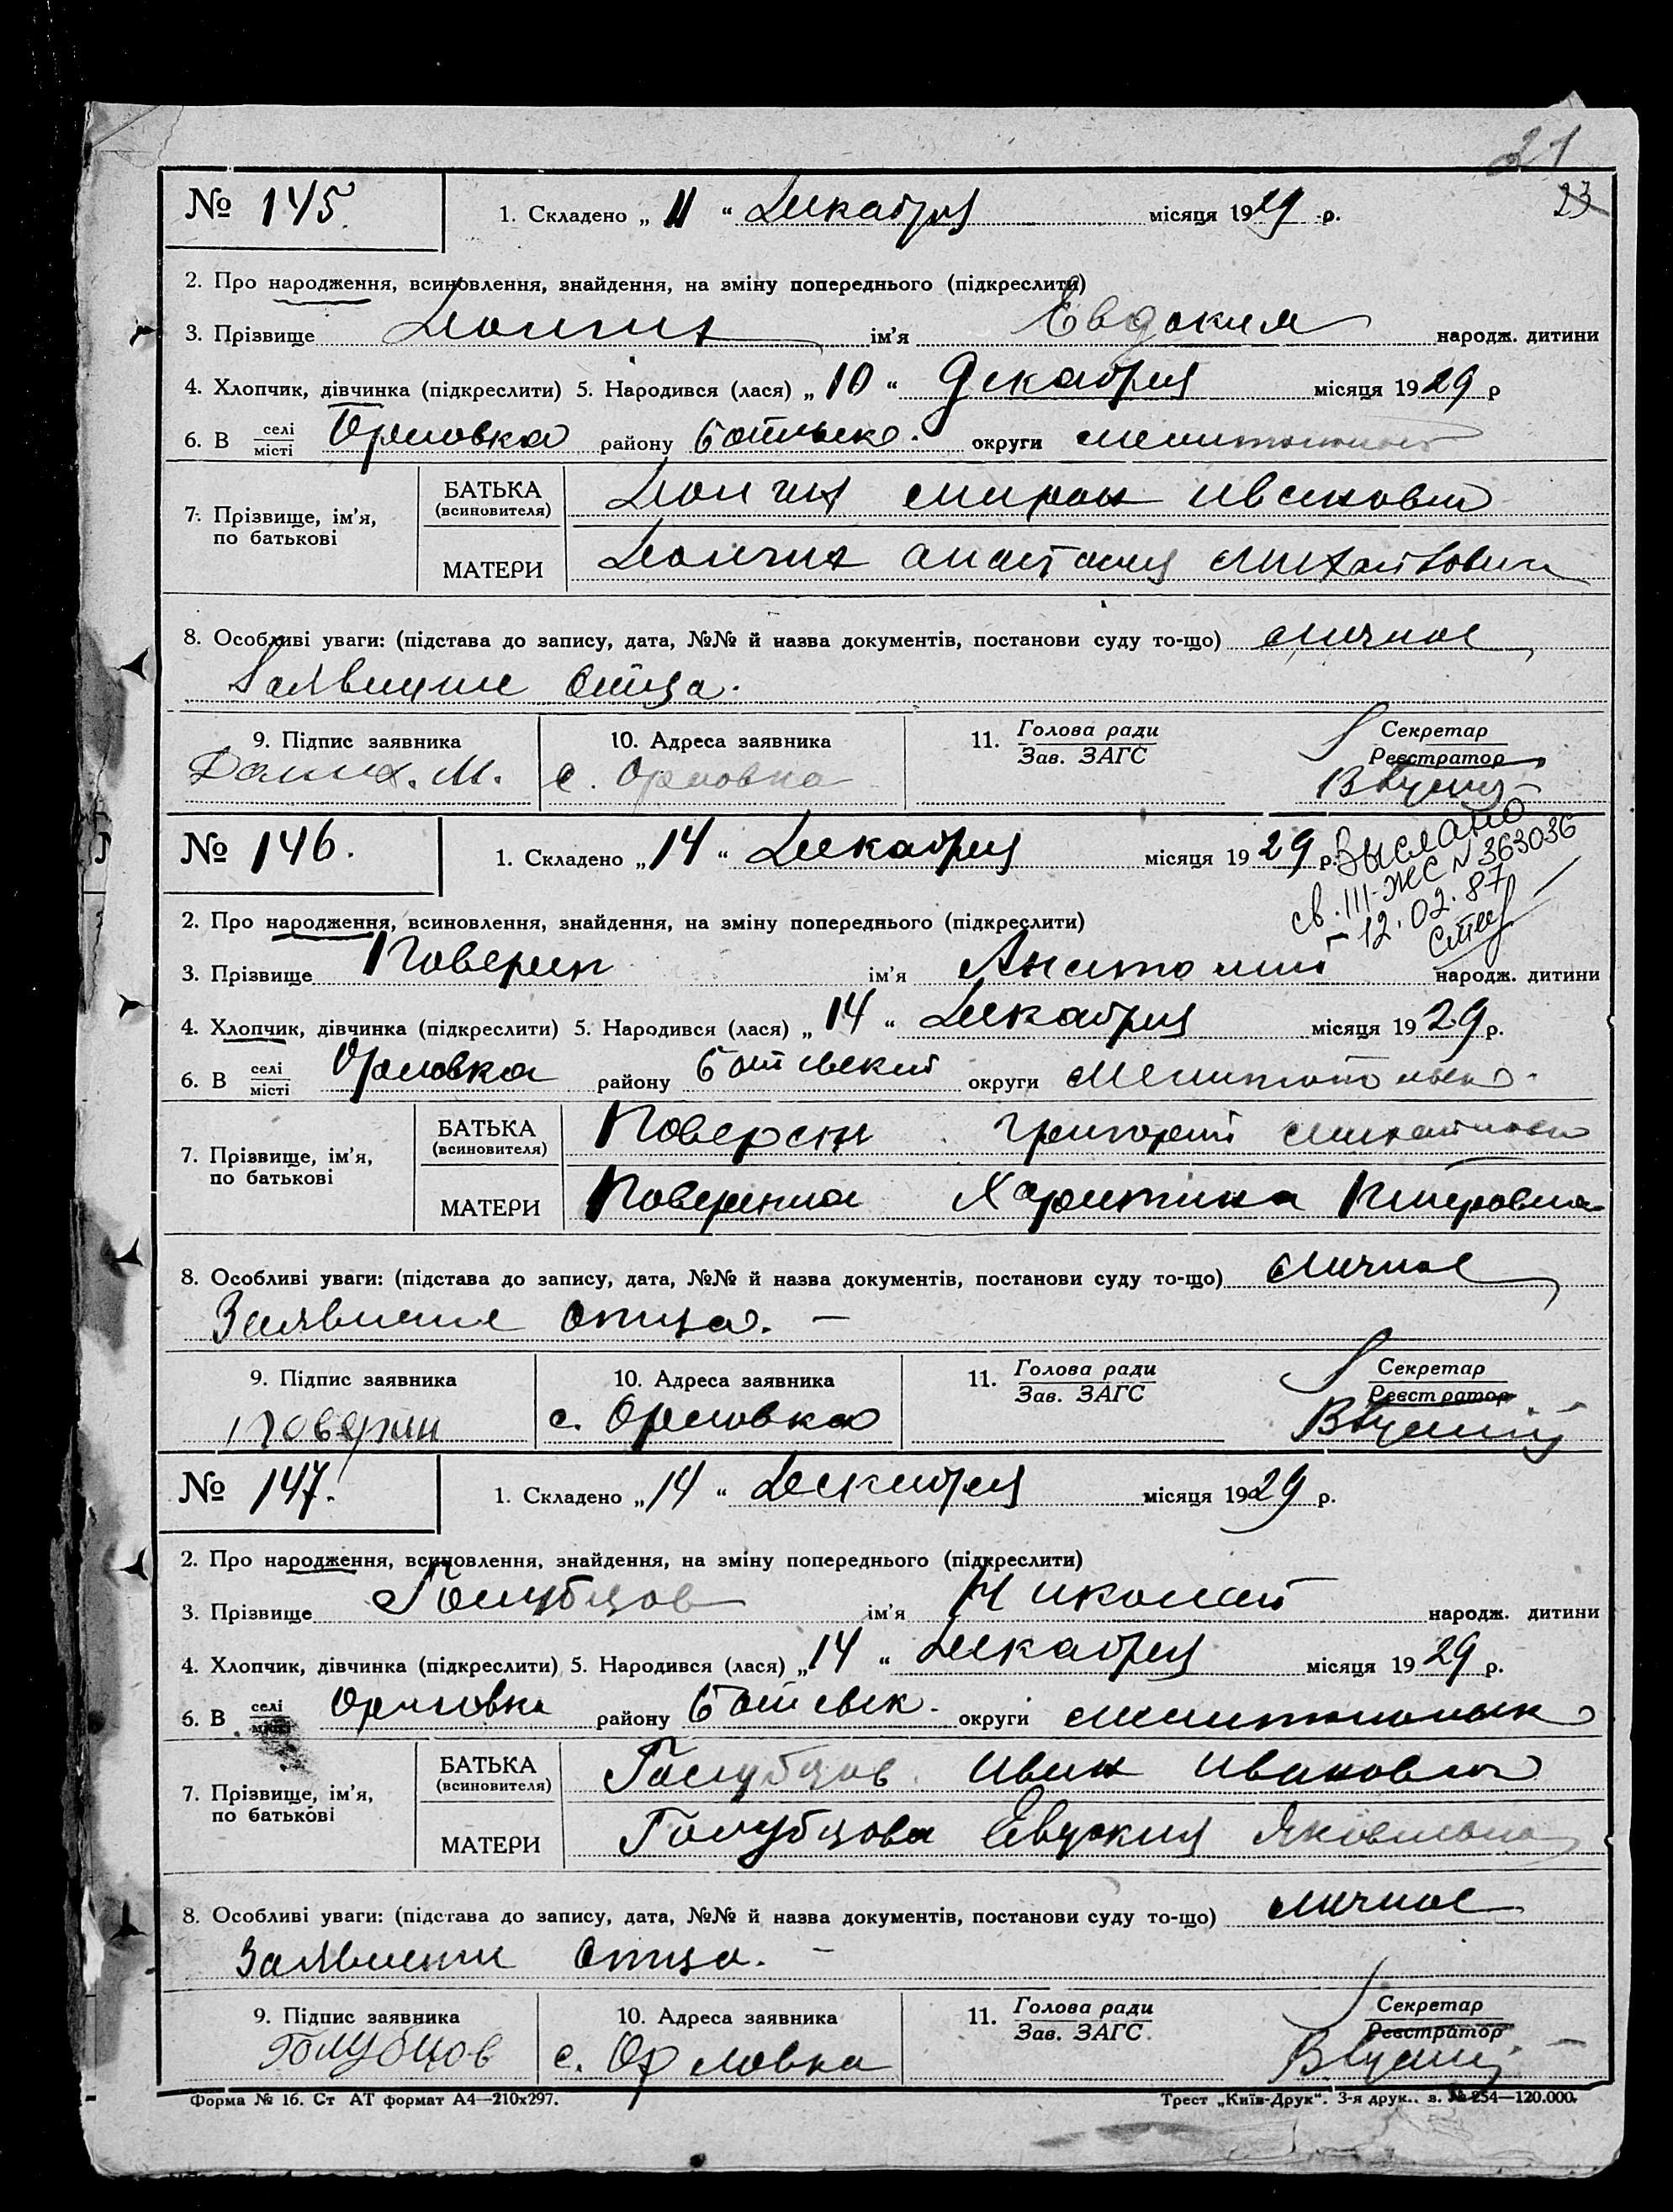 21
23
№ 145. 1. Складено „ 11 “ Декабря місяця 1929 р.
2. Про народження, всиновлення, знайдення, на зміну попереднього (підкреслити)
3. Прізвище ім’я Евдоким народж. дитини
4. Хлопчик, дівчинка (підкреслити) 5. Народився (лася) „ 10 “ Декабря місяця 1929 р
6. В селі місті Орловка району округи
7. Прізвище, ім’я, по батькові
БАТЬКА (всиновителя) Мирон Иванович
МАТЕРИ Анастасия
8. Особливі уваги: (підстава до запису, дата, №№ й назва документів, постанови суду то-що) личное
Заявление Отца.
9. Підпис заявника 10. Адреса заявника 11. Голова ради Зав. ЗАГС Секретар Реєстратор
М. с. Орловка
№ 146. 1. Складено „ 14 “ Декабря місяця 1929 р.
Выслано
св. III-ЖС № 363036
12.02.87
2. Про народження, всиновлення, знайдення, на зміну попереднього (підкреслити)
3. Прізвище Поверин ім’я Анатолий народж. дитини
4. Хлопчик, дівчинка (підкреслити) 5. Народився (лася) „ 14 “ Декабря місяця 1929 р.
6. В селі місті Орловка району округи
7. Прізвище, ім’я, по батькові
БАТЬКА (всиновителя) Поверин Григорий
МАТЕРИ Харитина
8. Особливі уваги: (підстава до запису, дата, №№ й назва документів, постанови суду то-що) личное
Заявление Отца. —
9. Підпис заявника 10. Адреса заявника 11. Голова ради Зав. ЗАГС Секретар Реєстратор
Поверин с. Орловка
№ 147. 1. Складено „ 14 “ Декабря місяця 1929 р.
2. Про народження, всиновлення, знайдення, на зміну попереднього (підкреслити)
3. Прізвище Голубцов ім’я Николай народж. дитини
4. Хлопчик, дівчинка (підкреслити) 5. Народився (лася) „ 14 “ Декабря місяця 1929 р.
6. В селі місті Орловка району округи
7. Прізвище, ім’я, по батькові
БАТЬКА (всиновителя) Голубцов Иван Иванович
МАТЕРИ Голубцова Евдокия Яковлевна
8. Особливі уваги: (підстава до запису, дата, №№ й назва документів, постанови суду то-що) личное
Заявление Отца. —
9. Підпис заявника 10. Адреса заявника 11. Голова ради Зав. ЗАГС Секретар Реєстратор
Голубцов с. Орловка
Форма № 16. Ст АТ формат А4—210х297. Трест „Київ-Друк“. 3-я друк.. з. № 254—120.000.